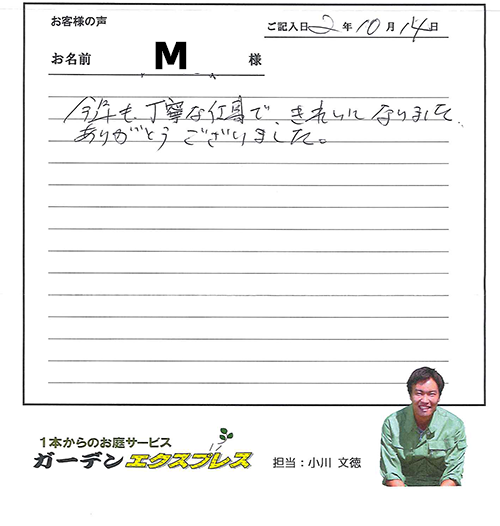 お客様の声
ご記入日 2 年 10 月 14 日
お名前 M 様
今年も、丁寧な仕事で、きれいになりました。
ありがとうございました。
1本からのお庭サービス
ガーデンエクスプレス
担当：小川 文徳